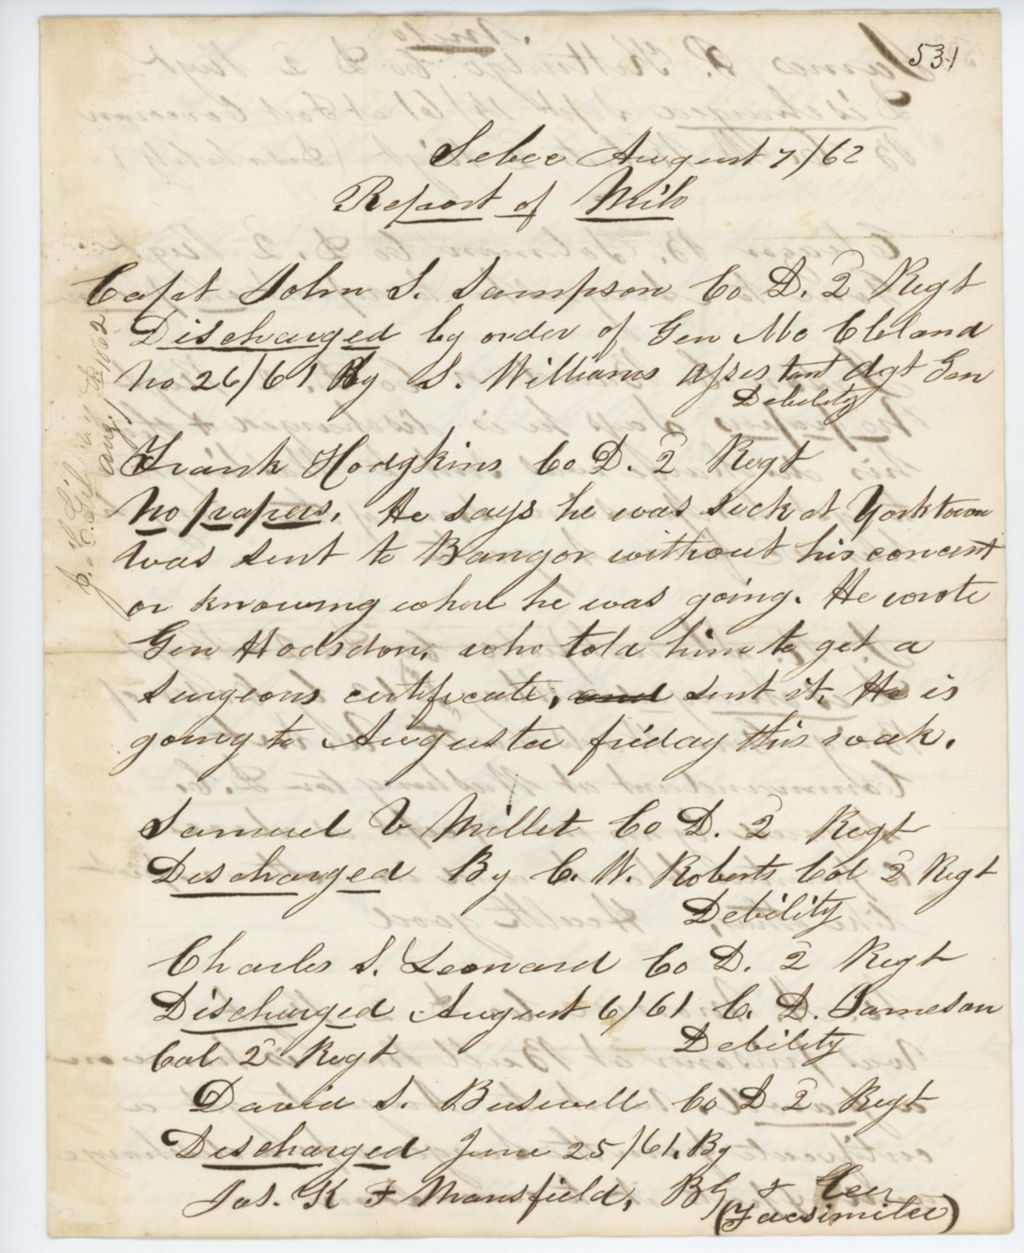 Milo
531
Sebec August 7/62
Report of Milo
Capt John S. Sampson Co D. 2 Regt
Discharged by order of Gen Mc Cleland
No 26/61 By S. Williams Assistant Agt Gen
Debility
Frank Hodgkins Co D. 2 Regt
No papers. He says he was sick at Yorktown
was sent to Bangor without his concent
or knowing whare he was going. He wrote
Gen Hodsdon, who told him to get a
Surgeons certificate, and sent it. He is
going to Augusta friday this weak.
Samuel V Millet Co D. 2 Regt
Discharged By C. W. Roberts Col 2 Regt
Debility
Charles S. Leonard Co D. 2 Regt
Discharged August 6/61 C. D. Jameson
Col 2 Regt Debility
David S. Buswell Co D 2 Regt
Discharged June 25/61. By
Jos. K F Mansfield, BG
(Facsimilee)
Aug, 1862